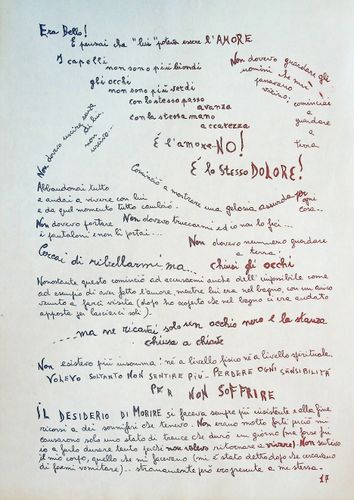 Era Bello!
E pensai che "lui" poteva essere l'AMORE
I capelli
non sono più biondi
gli occhi
non sono più verdi
con lo stesso passo
avanza
con la stessa mano
accarezza
Non dovevo guardare gli
uomini che mi
passavano
vicino;
cominciai
a
guardare
a
terra
Non dovevo uscire senza
di lui,
non
uscivo...
È l'amore NO!
È lo stesso DOLORE!
Abbandonai tutto
e andai a vivere con lui
e da quel momento tutto cambiò.
Cominciò a mostrare una gelosia assurda per
ogni
cosa.
Non dovevo portare
i pantaloni e non li portai...
Non dovevo truccarmi ed io no lo feci...
Non dovevo nemmeno guardare
a terra.
Cercai di ribellarmi ma... chiusi gli occhi
Nonostante questo cominciò ad accusarmi anche dell'impossibile come
ad esempio di aver fatto l'amore, mentre lui era nel bagno, con un amico
venuto a farci visita (dopo ho scoperto che nel bagno ci era andato
apposta per lasciarci soli).
...ma ne ricavai solo un occhio nero e la stanza
chiusa a chiave
Non esistevo più insomma: né a livello fisico né a livello spirituale.
VOLEVO SOLTANTO NON SENTIRE PIÙ - PERDERE OGNI SENSIBILITÀ
PER
NON SOFFRIRE
IL DESIDERIO DI MORIRE si faceva sempre più insistente e alla fine
ricorsi a dei sonniferi che tenevo. Non erano molto forti però mi
causarono solo uno stato di trance che durò un giorno (ma forse fui
io a farlo durare tanto perché non volevo ritornare a vivere). Non sentivo
il mio corpo, quello che mi facevano (mi è stato detto dopo che cercavano
di farmi vomitare). Stranamente però ero presente a me stessa.
17